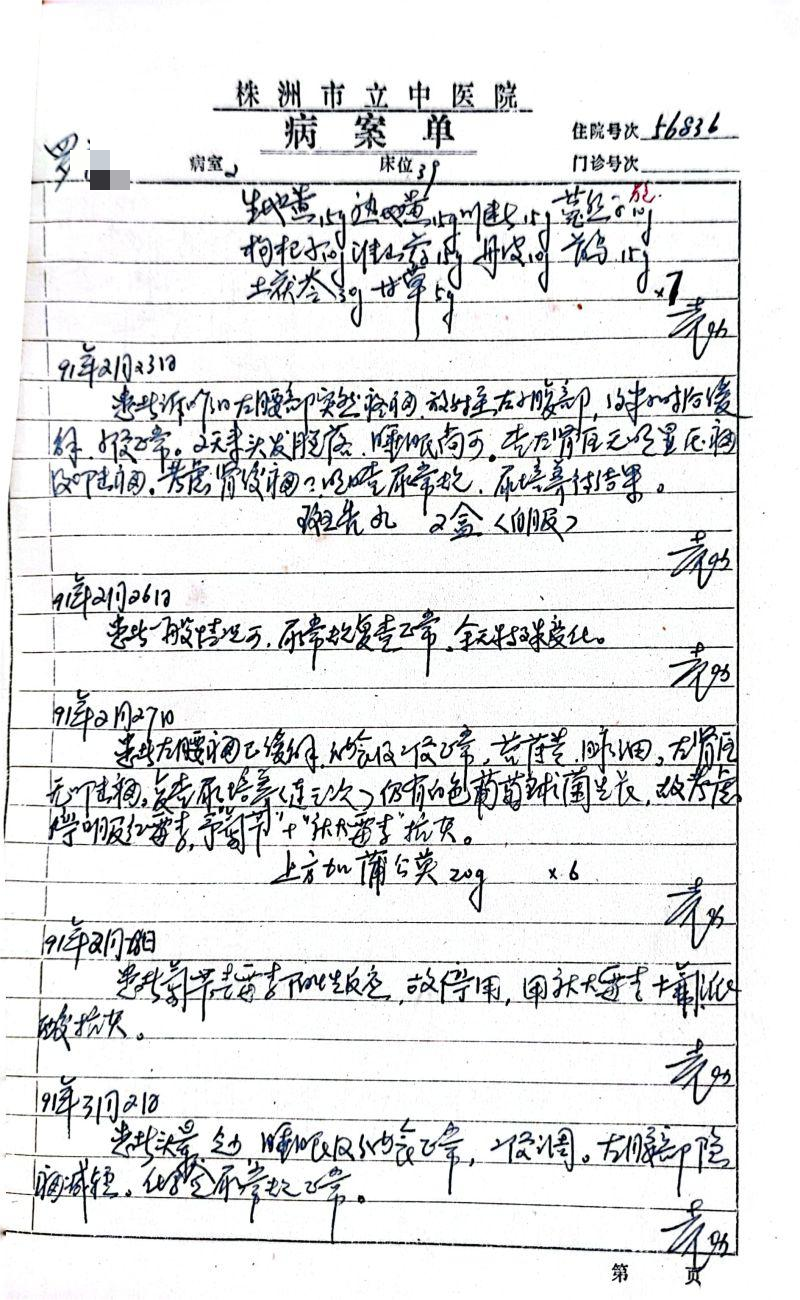 株洲市立中医院
病案单
住院号次 56836
罗
病室2 床位39 门诊号次
生地黄15g 熟地黄15g 川断15g 菟丝子10g 包
枸杞子10g 淮山药15g 丹皮10g 15g
土茯苓30g 甘草5g ×7
91年2月23日
患者诉昨日左腰部突然疼痛,放射至左小腹部,约半小时后缓
解,二便正常。2天来头发脱落,睡眠尚可。查左肾区无明显压痛
及叩击痛。考虑肾绞痛?明日查尿常规,尿培养待结果。
2盒(自服)
91年2月26日
患者一般情况可,尿常规复查正常,余无特殊变化。
91年2月27日
患者左腰痛已缓解,纳食及二便正常,苔薄黄,脉细。左肾区
无叩击痛。复查尿培养(连三次)仍有白色葡萄球菌生长,故考虑
停服红霉素,予"苄"+"庆大霉素"抗炎。
上方加蒲公英20g ×6
91年2月28日
患者青霉素阳性反应,故停用,用庆大霉素+
酸抗炎。
91年3月2日
患者头晕,睡眠及纳食正常,二便调。左腰部隐
痛减轻。化验尿常规正常。
第 页